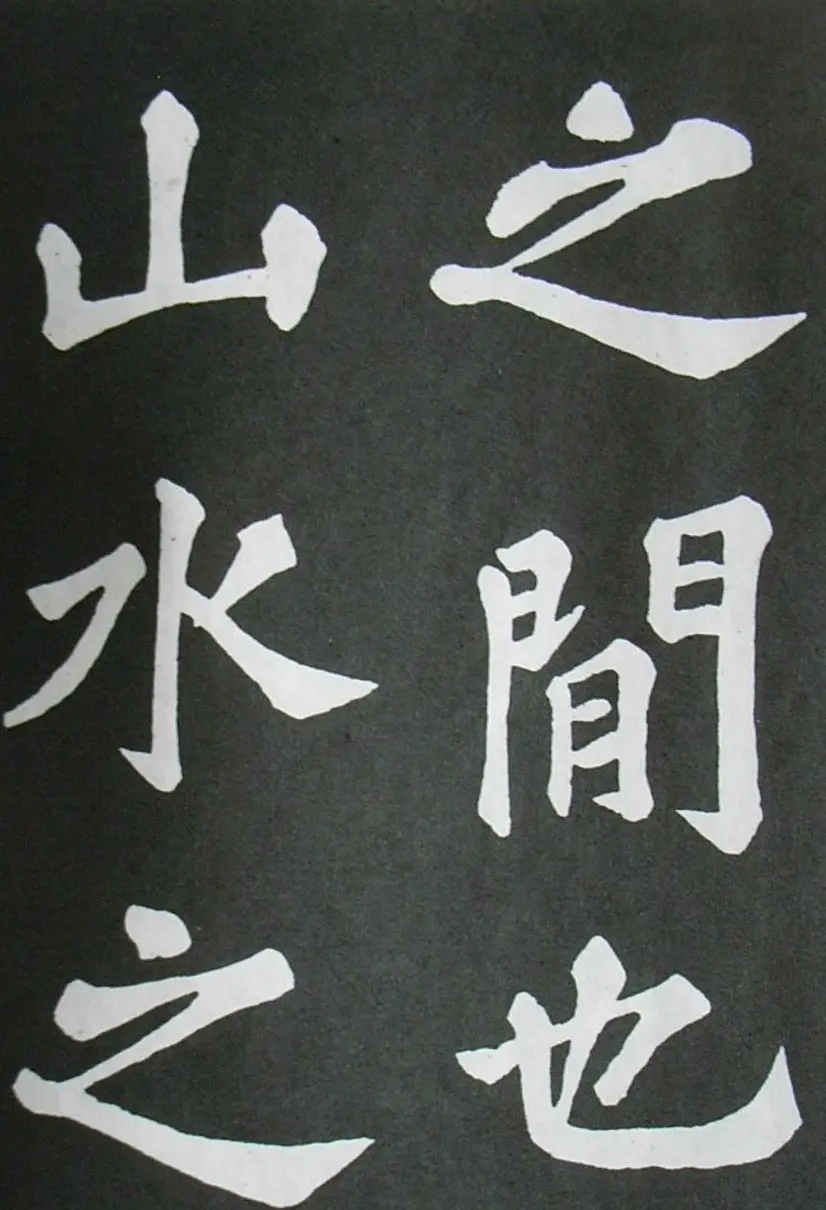 之閒也
山水之